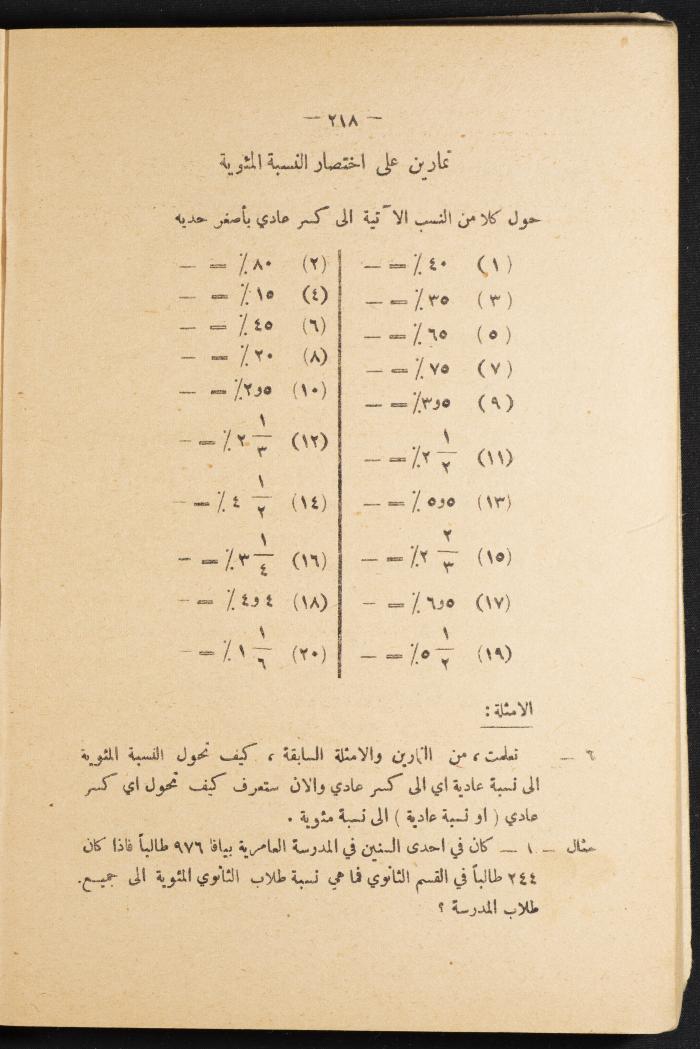 — ٢١٨ —
تمارين على اختصار النسبة المئوية
حول كلا من النسب الآتية الى كسر عادي بأصغر حديه
(١) ٤٠ ٪ = —
(٢) ٨٠ ٪ = —
(٣) ٣٥ ٪ = —
(٤) ١٥ ٪ = —
(٥) ٦٥ ٪ = —
(٦) ٤٥ ٪ = —
(٧) ٧٥ ٪ = —
(٨) ٢٠ ٪ = —
(٩) ٣و٥ ٪ = —
(١٠) ٢و٥ ٪ = —
(١١) ٢ ١/٢ ٪ = —
(١٢) ٢ ١/٣ ٪ = —
(١٣) ٥و٥ ٪ = —
(١٤) ٤ ١/٢ ٪ = —
(١٥) ٢ ٢/٣ ٪ = —
(١٦) ٣ ١/٤ ٪ = —
(١٧) ٦و٥ ٪ = —
(١٨) ٤و٤ ٪ = —
(١٩) ٥ ١/٢ ٪ = —
(٢٠) ١ ١/٦ ٪ = —
الامثلة :
٦ — تعلمت ، من التمارين والامثلة السابقة ، كيف تحول النسبة المئوية
الى نسبة عادية اي الى كسر عادي والان ستعرف كيف تحول اي كسر
عادي ( او نسبة عادية ) الى نسبة مئوية .
مثال — ١ — كان في احدى السنين في المدرسة العامرية بيافا ٩٧٦ طالباً فاذا كان
٢٤٤ طالباً في القسم الثانوي فما هي نسبة طلاب الثانوي المئوية الى جميع
طلاب المدرسة ؟